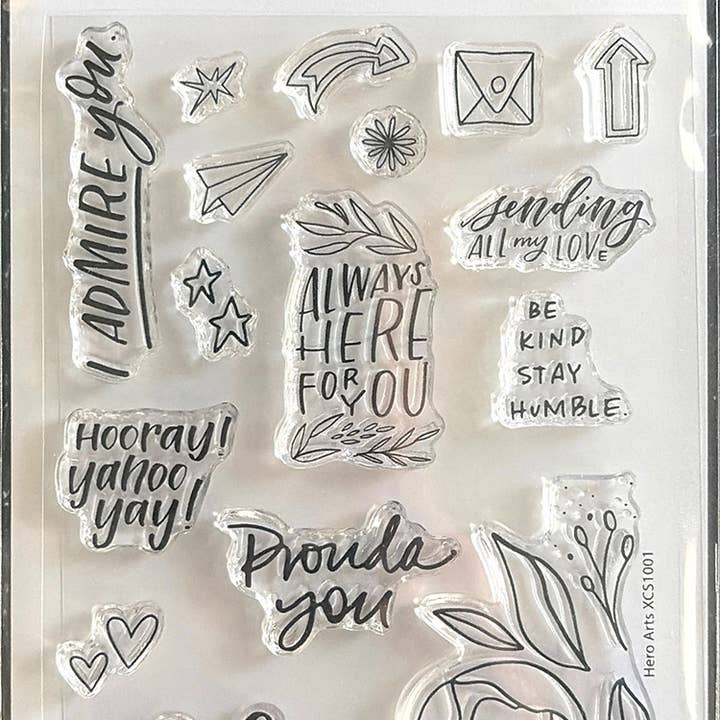 I ADMIRE you.
sending
ALL my LOVE
ALWAYS
HERE
FOR
YOU
BE
KIND
STAY
HUMBLE.
Hooray!
yahoo
yay!
Prouda
you
Hero Arts XCS1001